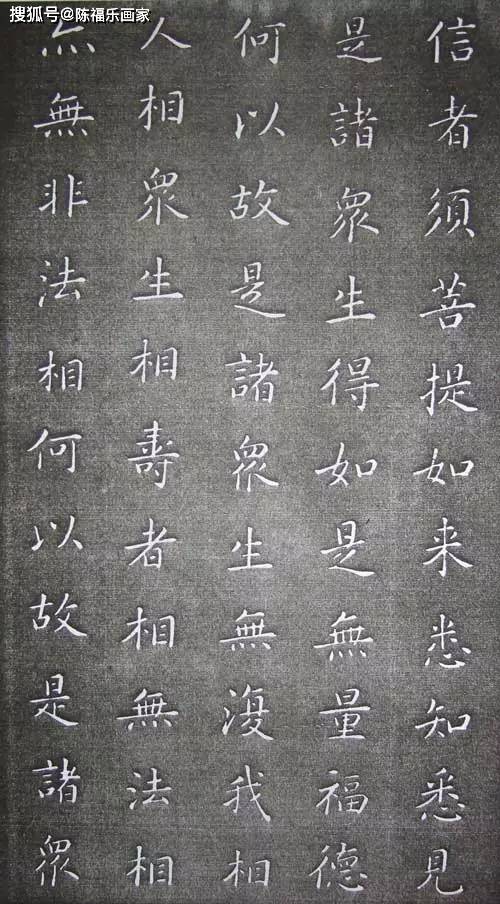 搜狐号@陈福乐画家
信者須菩提如来悉知悉見
是諸衆生得如是無量福德
何以故是諸衆生無復我相
人相衆生相壽者相無法相
亦無非法相何以故是諸衆